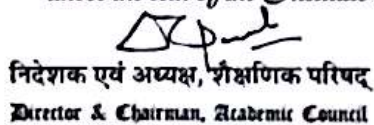 निदेशक एवं अध्यक्ष, शैक्षणिक परिषद्
Director & Chairman, Academic Council